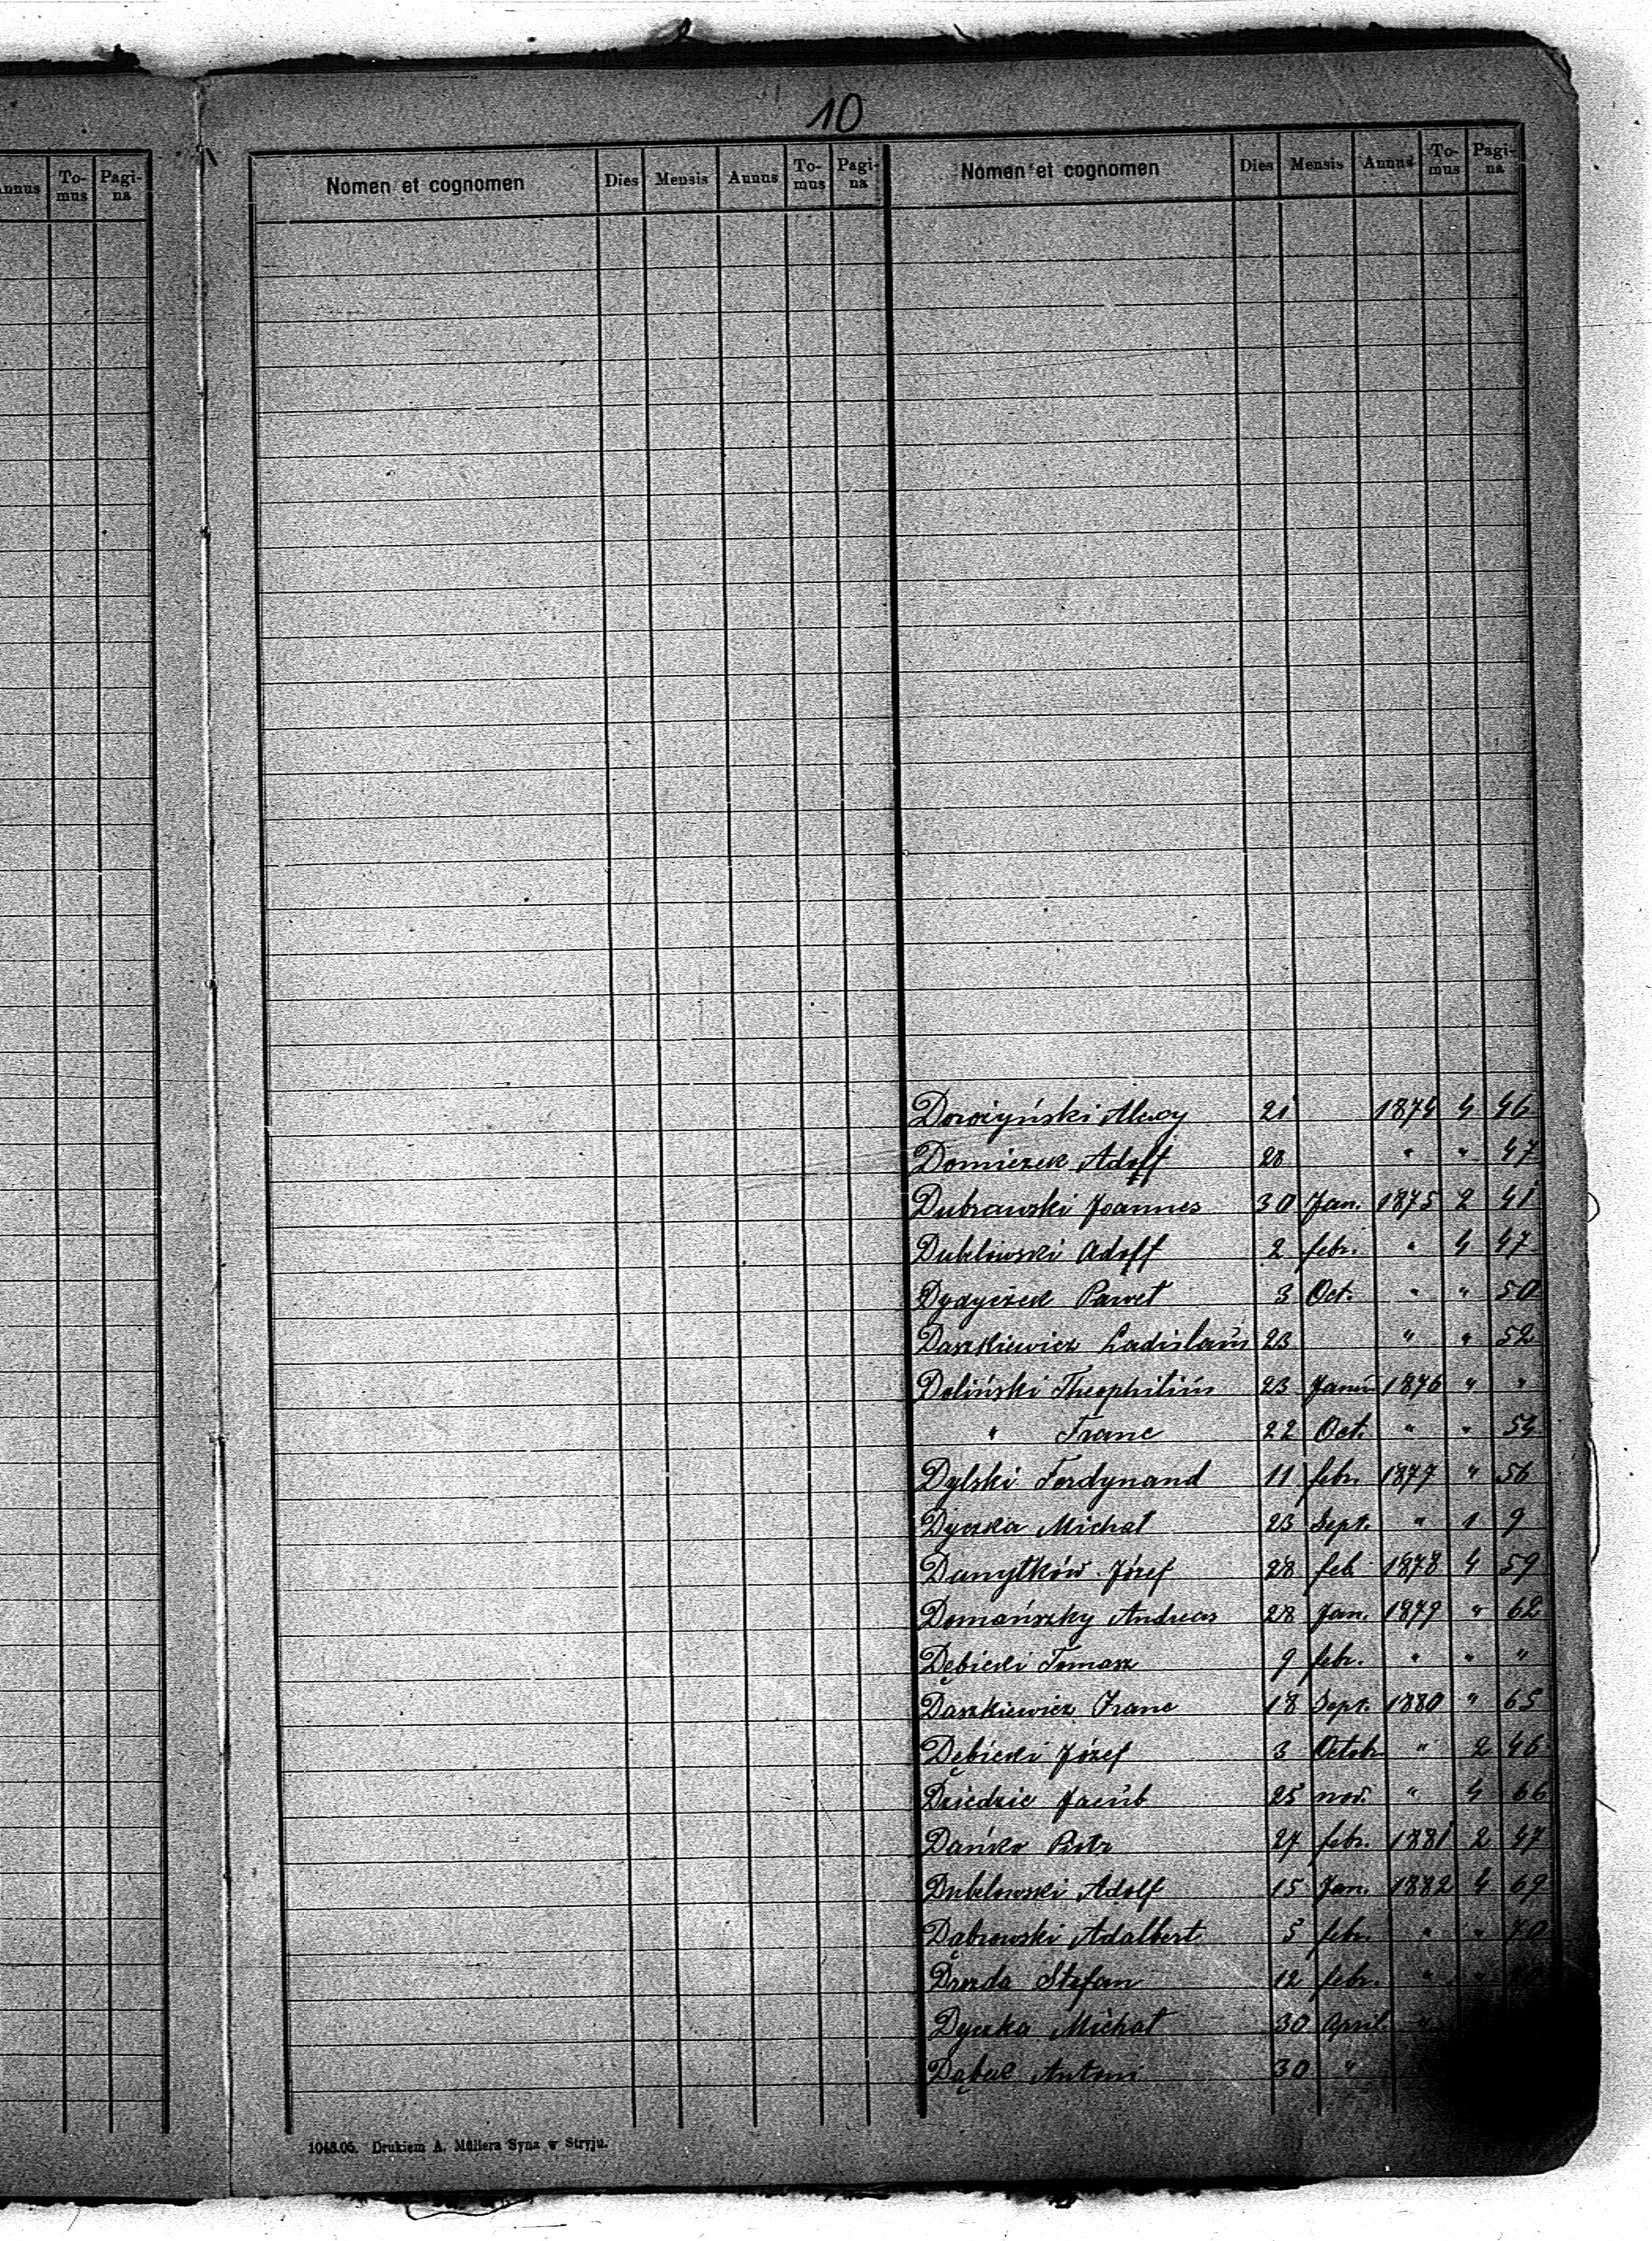 10
nnus To-mus Pagi-na
Nomen et cognomen Dies Mensis Annus To-mus Pagi-na Nomen et cognomen Dies Mensis Annus To-mus Pagi-na
21 1874 4 46
Domiczek Adolf 28 " " 47
Dubrawski Joannes 30 Jan. 1875 2 41
Dublowski Adolf 2 febr. " 4 47
Dydyczek Paweł 3 Oct. " " 50
Daszkiewicz Ladislaus 23 " " 52
Doliński Theophilius 23 Januar 1876 " "
" Franc 22 Oct. " " 54
Dylski Ferdynand 11 febr. 1877 " 56
Dyczka Michał 23 Sept. " 1 9
Danyłków Józef 28 feb 1878 4 59
Domańszky Andreas 28 Jan. 1879 " 62
Dębicki Tomasz 9 febr. " " "
Daszkiewicz Franc 18 Sept. 1880 " 65
Dębicki Józef 3 Octob. " 2 46
Dziedzic Jacub 25 nov. " 4 66
Dańko Piotr 27 febr. 1881 2 47
Dublowski Adolf 15 Jan. 1882 4 69
Dąbrowski Adalbert 5 febr. " " 70
Drozda Stefan 12 febr. " "
Dyczka Michał 30 April "
Dąbek Antoni 30 "
1048.05. Drukiem A. Müllera Syna w Stryju.